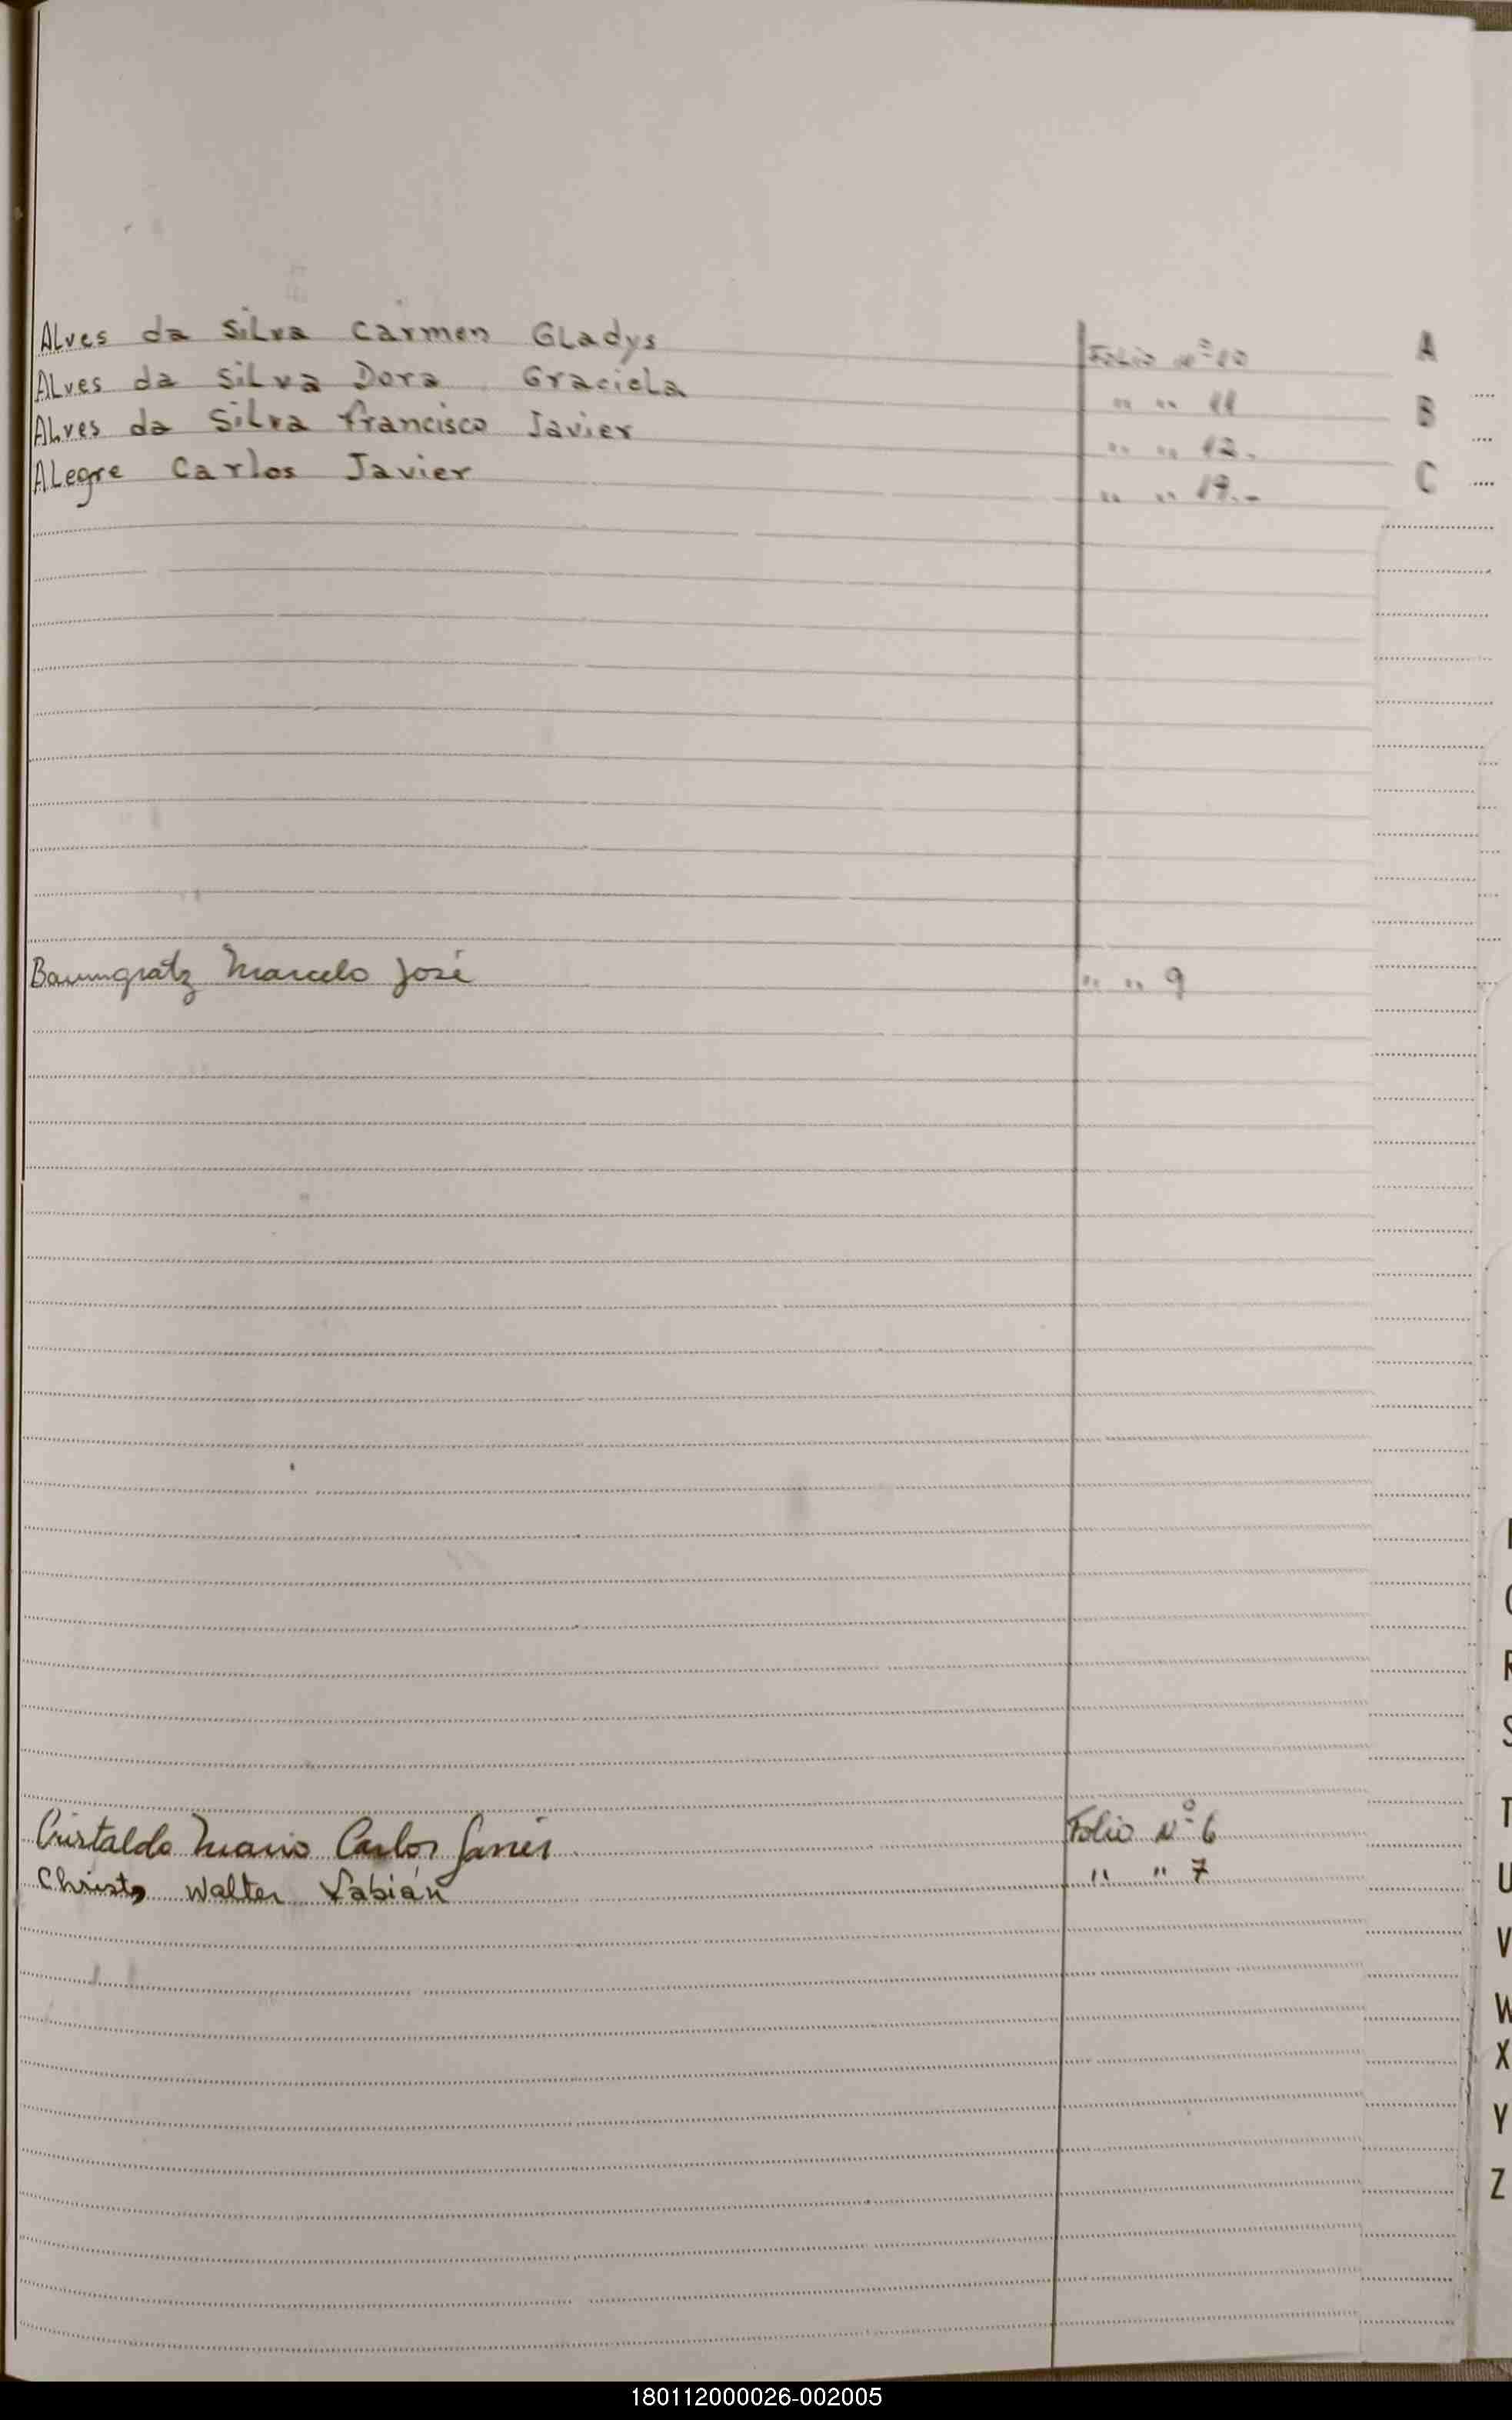 Alves da Silva Carmen Gladys Folio Nº 10 A
Alves da Silva Dora Graciela " " 11 B
Alves da Silva Francisco Javier " " 12.
Alegre Carlos Javier " " 19.- C
Baumgratz Marcelo José " " 9
Cristaldo Mario Carlos Javier Folio Nº 6
Christ, Walter Fabián " " 7
R
S
T
U
V
W
X
Y
Z
180112000026-002005